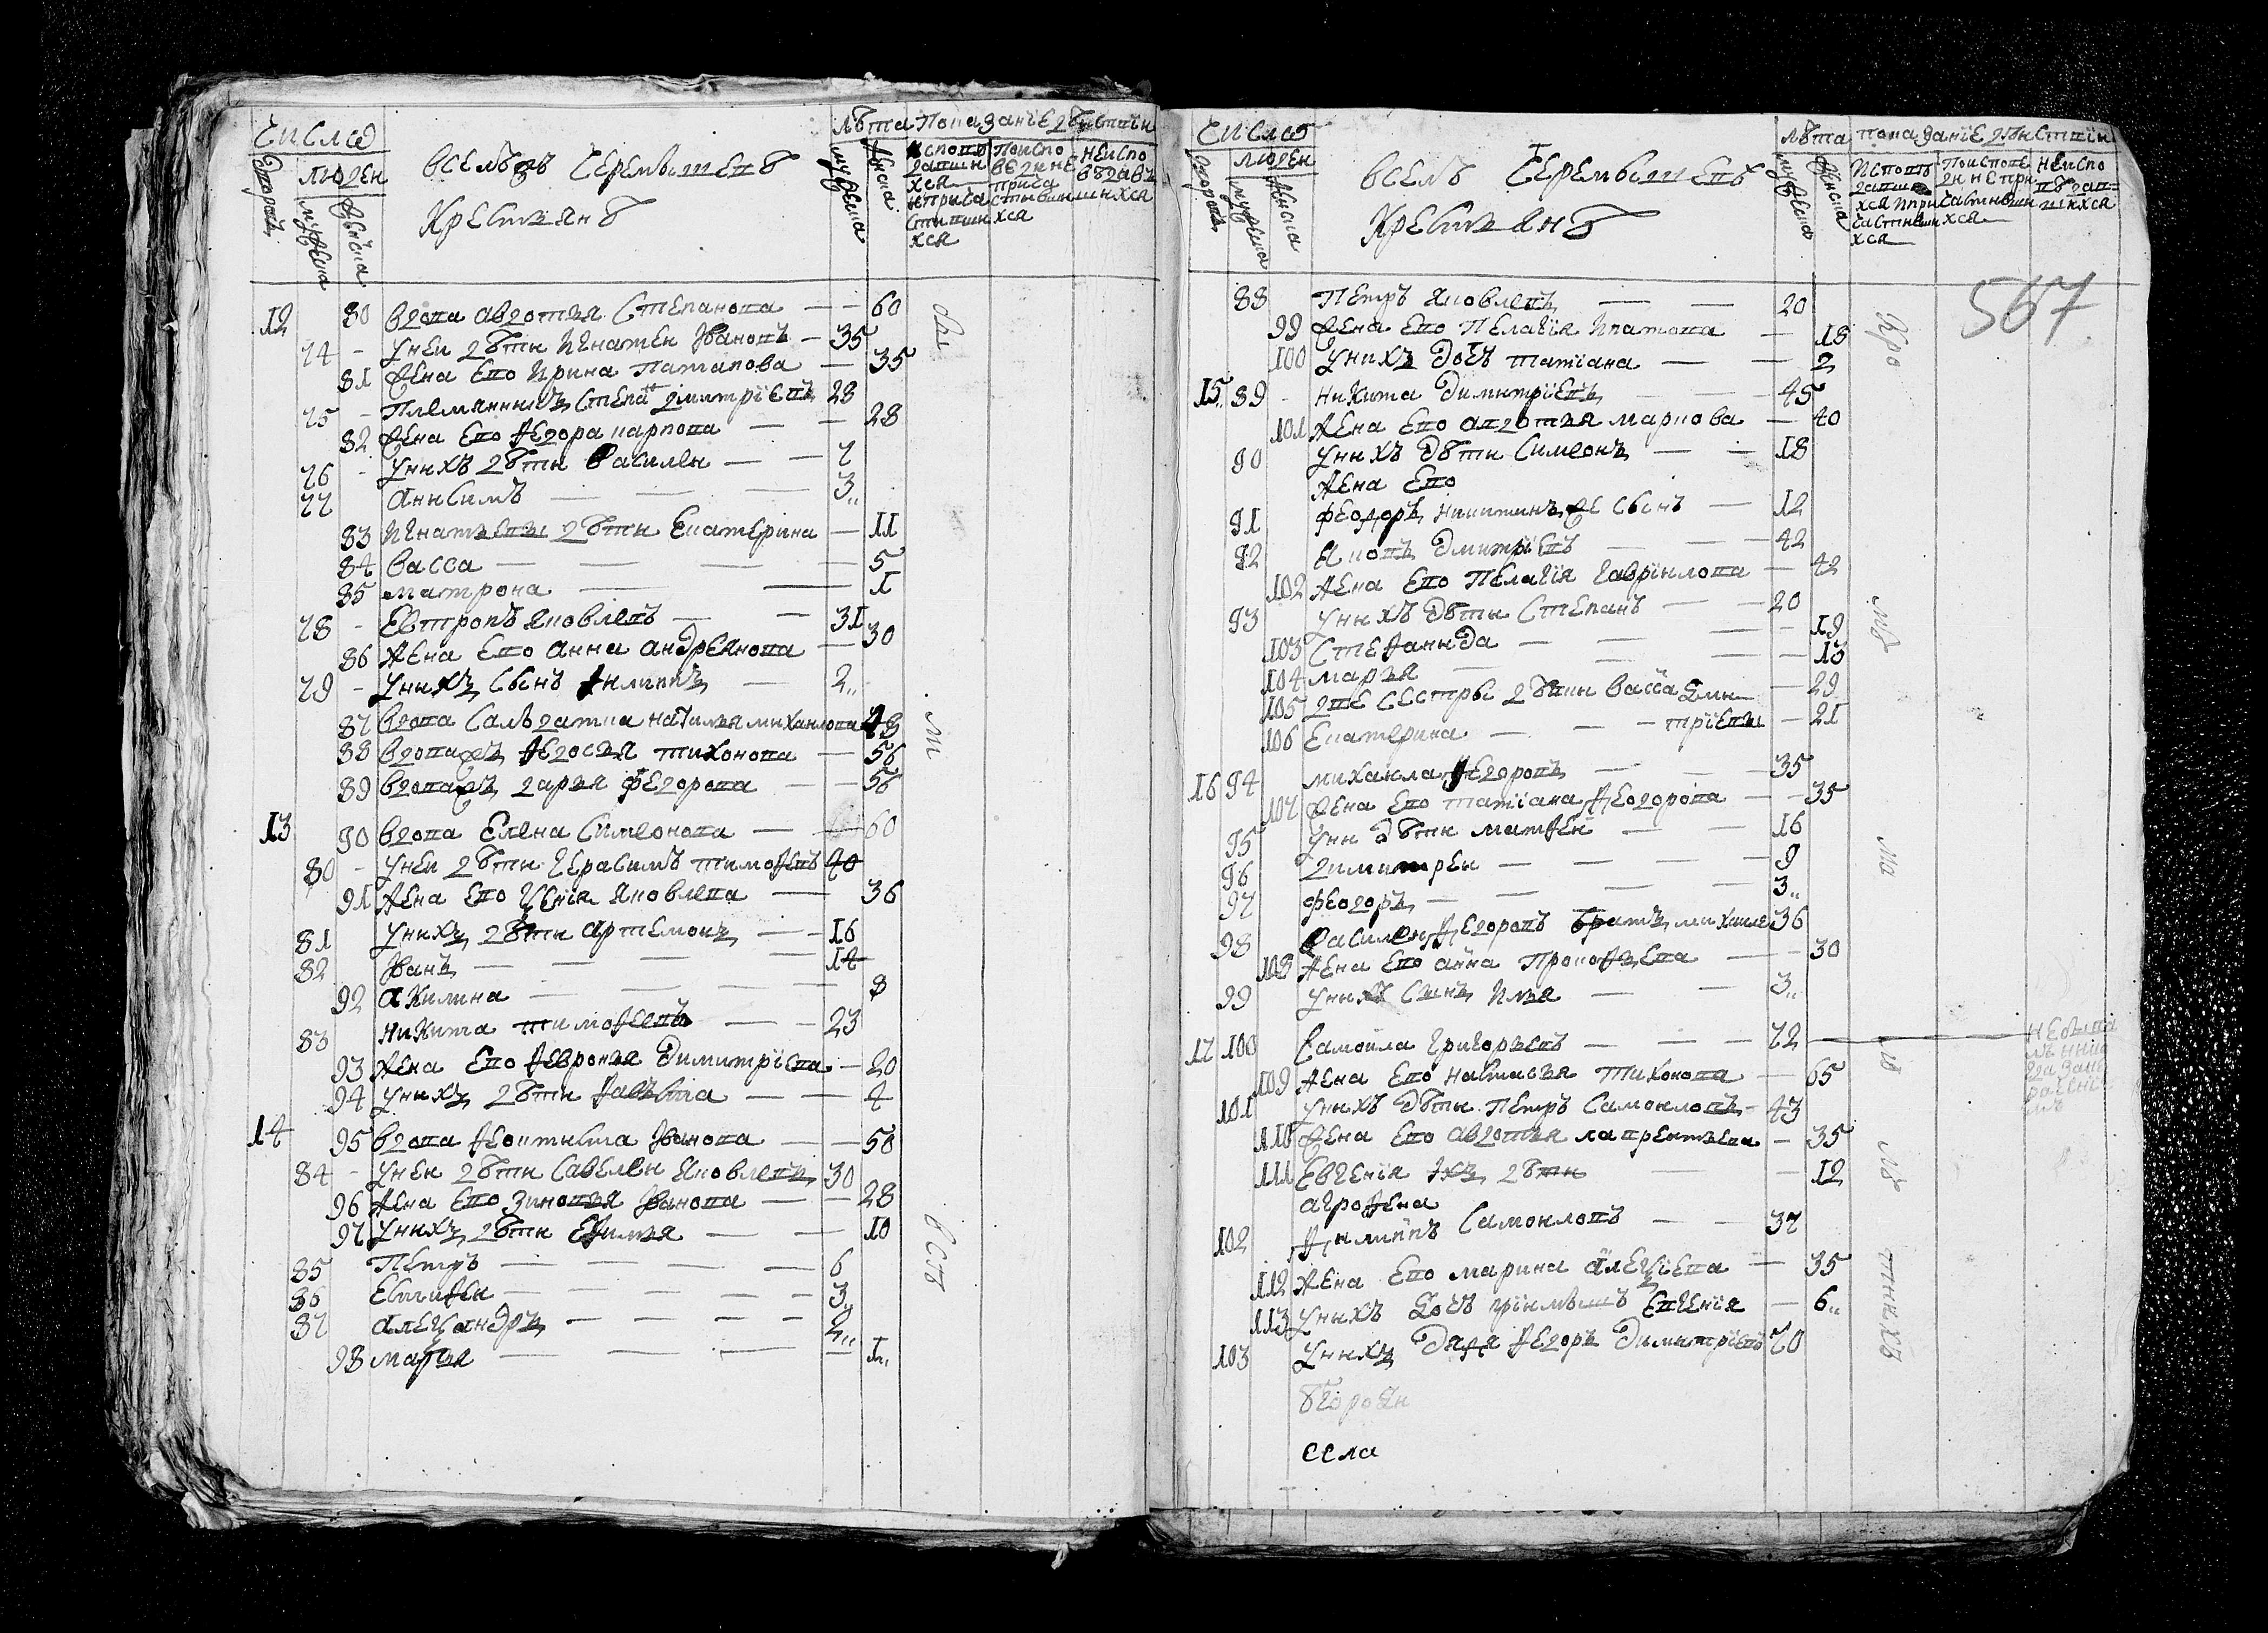 Число
Дворовъ
людей
мужеска
женска
вселѣ Черемъшевѣ
Крестьянъ
лѣта
мужеска
женска
Показанїе дѣйствїи
исповѣдавшихся и причастившихся
поисповедине причастившихся
неисповѣдавшихся
12 80 вдова авдотья Степанова — 60
74 - унеи дѣти Игнатеи Івановъ — 35
81 жена ево Ирина Патапова — 35
75 - Племянникъ Степа димитрїевъ 28
82 жена ево Ѳедора карпова — 28
76 - унихъ дѣти василеи — 7
77 анисимъ — 3
83 Игнатьевы дѣти Екатерина — 11
84 васса — 5
85 матрона — 1
78 - Евтропъ яковлевъ — 31
86 жена ево анна андреянова — 30
79 - унихъ сынъ Ѳилиппъ — 2
87 вдова салъдатка наталья михаилова 48
88 вдова Ѳедосья тихонова — 56
89 вдова дарья федорова — 56
13 90 вдова Елена Симеонова — 60
80 - унеи дѣти Герасимъ тимоѲевъ 40
91 жена ево Ѯенїя яковлева — 36
81 унихъ дѣти артемонъ — 16
82 Іванъ — 14
92 акилина — 8
83 никита тимоѲеевъ — 23
93 жена ево Ѳевронья димитрїева — 20
94 унихъ дѣти Ѳавъста — 4
14 95 вдова Ѳеоктиста Іванова — 50
84 - унеи дѣти савелеи яковлевъ 30
96 жена ево зиновья Іванова — 28
97 унихъ дѣти еѲимья — 10
85 Петръ — 6
86 евтиѲеи — 3
87 алеѮандръ — 2
98 марья — 1
вси
т
всѣ
Число
Дворовъ
людей
мужеска
женска
вселѣ Черемъшевѣ
Крестьянъ
лѣта
мужеска
женска
показанїе дѣйствїи
исповѣдавшихся и причастившихся
поисповеди не причастившихся
неисповѣдавшихся
567
88 Петръ яковлевъ — 20
99 жена ево Пелагїя Игнатова — 18
100 унихъ дочъ татїана — 2
15 89 - никита димитрїевъ — 45
101 жена ево авдотья маркова — 40
90 унихъ дѣти симеонъ — 18
жена ево
91 феодоръ никитинъ же сынъ — 12
92 яковъ дмитрїевъ — 42
102 жена ево Пелагїя гаврїилова — 42
93 унихъ дѣти степанъ — 20
103 стеѲанида — 19
104 марья — 13
105 двѣ сестры дѣвки васса дми— 29
106 екатерина — трїевы — 21
16 94 михаила Ѳедоровъ — 35
107 жена ево татїана Ѳеодорова — 35
95 уни дѣти матѲеи — 16
96 димитреи — 9
97 феодоръ — 3
98 василеи Ѳедоровъ братъ михаиле 36
108 жена ево анна ПрокоѲьева — 30
99 унихъ сынъ Илья — 3
17 100 самоила григорьевъ — 72
109 жена ево настасья тихонова — 65
101 унихъ дѣти Петръ самоиловъ — 43
110 жена ево авдотья лаврентьева — 35
111 евгенїя ихъ дѣти — 12
агроѲена
102 Ѳилиппъ самоиловъ — 37
112 жена ево марина алеѮїева — 35
113 унихъ дочъ евгенїя — 6
103 унихъ дядя Ѳедоръ димитрїевъ 70
села
Кро
мѣ